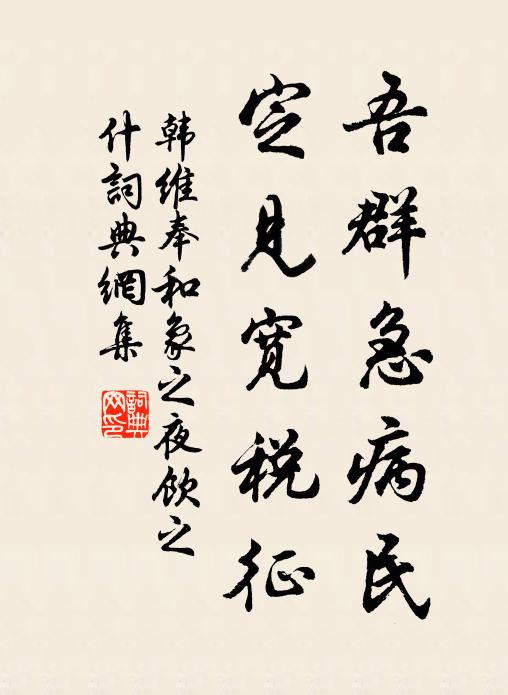 吾群急病民
定見寛税征
韩維奉和象之夜飲之
什詞典網集
詞典
网印